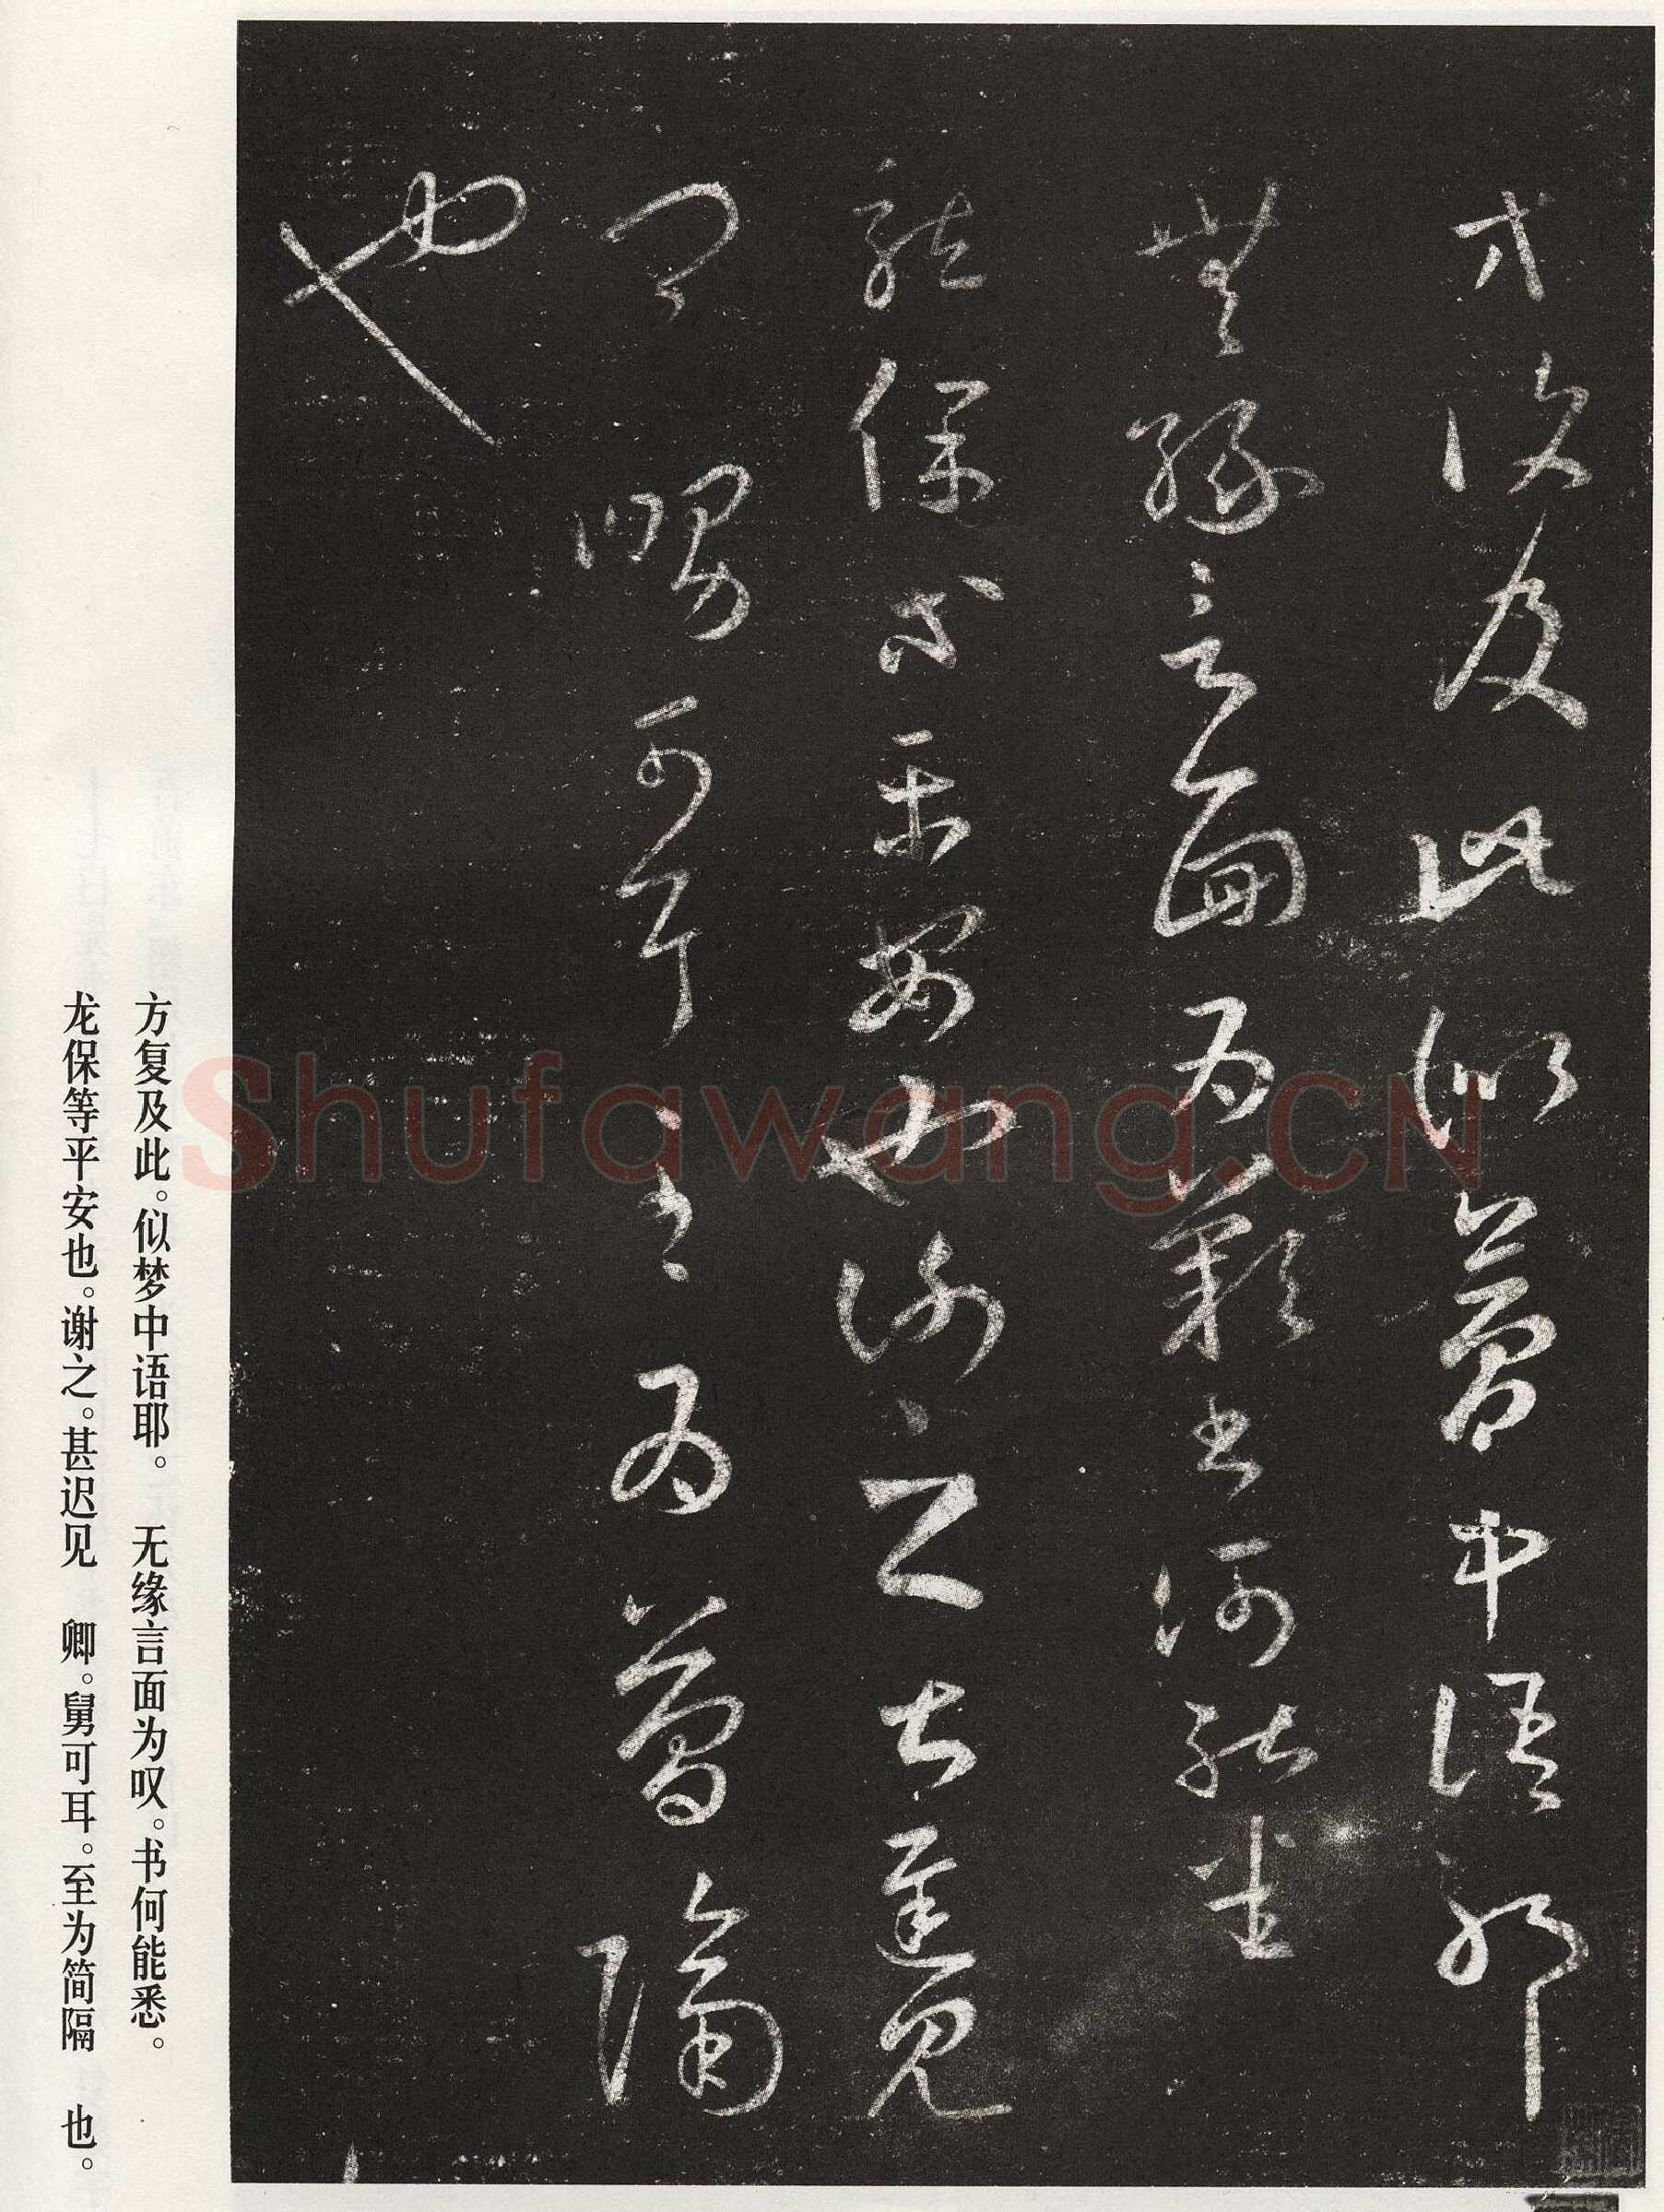 方復及此似夢中語耶
無緣言面為歎書何能悉
龍保等平安也謝之甚遲見
卿舅可耳至為簡隔
也
方复及此。似梦中语耶。 无缘言面为叹。书何能悉。
龙保等平安也。谢之。甚迟见 卿。舅可耳。至为简隔 也。
Shufawang.CN